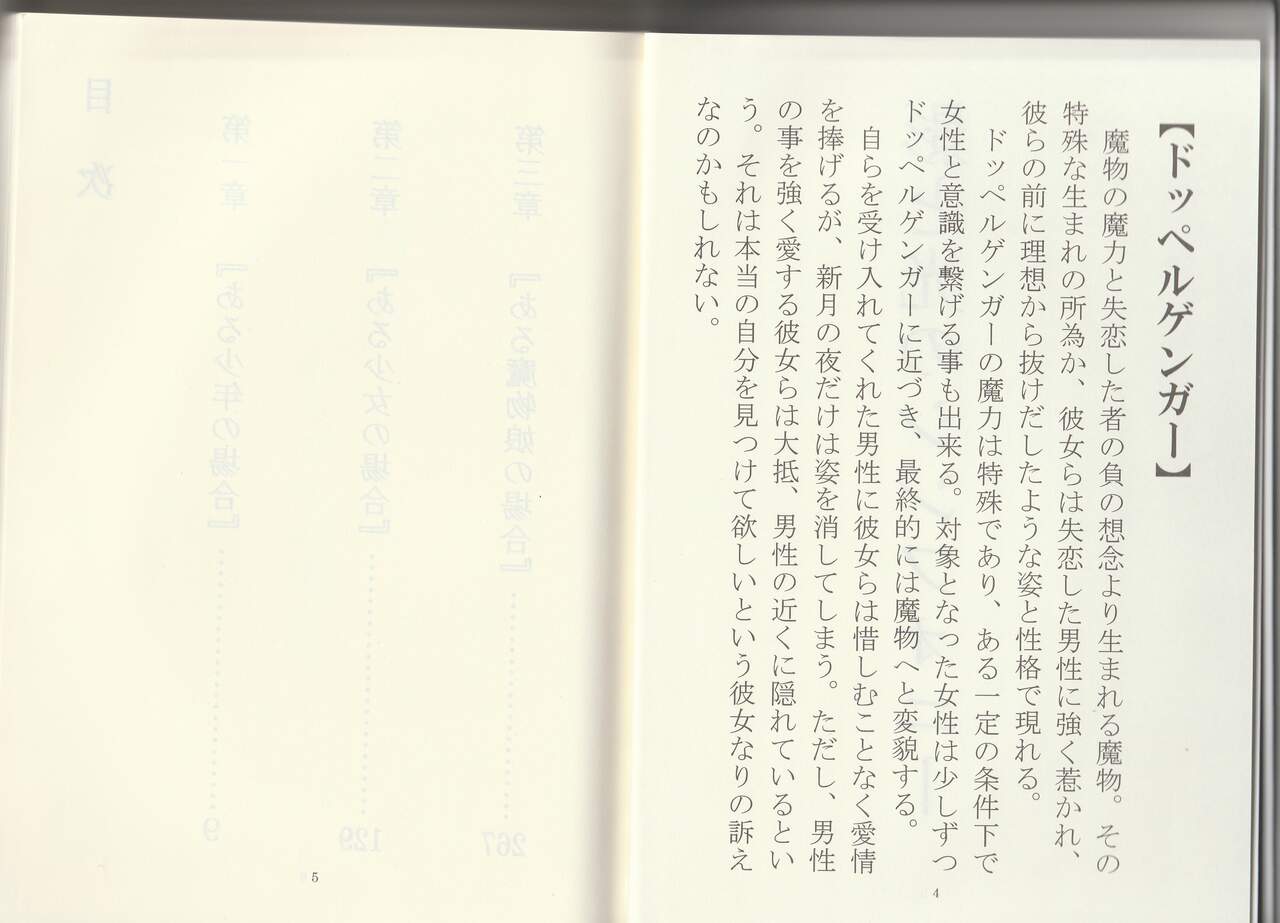 【ドッペルゲンガー】
魔物の魔力と失恋した者の負の想念より生まれる魔物。その
特殊な生まれの所為か、彼女らは失恋した男性に強く惹かれ、
彼らの前に理想から抜けだしたような姿と性格で現れる。
ドッペルゲンガーの魔力は特殊であり、ある一定の条件下で
女性と意識を繋げる事も出来る。対象となった女性は少しずつ
ドッペルゲンガーに近づき、最終的には魔物へと変貌する。
自らを受け入れてくれた男性に彼女らは惜しむことなく愛情
を捧げるが、新月の夜だけは姿を消してしまう。ただし、男性
の事を強く愛する彼女らは大抵、男性の近くに隠れているとい
う。それは本当の自分を見つけて欲しいという彼女なりの訴え
なのかもしれない。
4
第三章 『ある魔物娘の場合』 267
第二章 『ある少女の場合』 129
第一章 『ある少年の場合』 9
目次
5